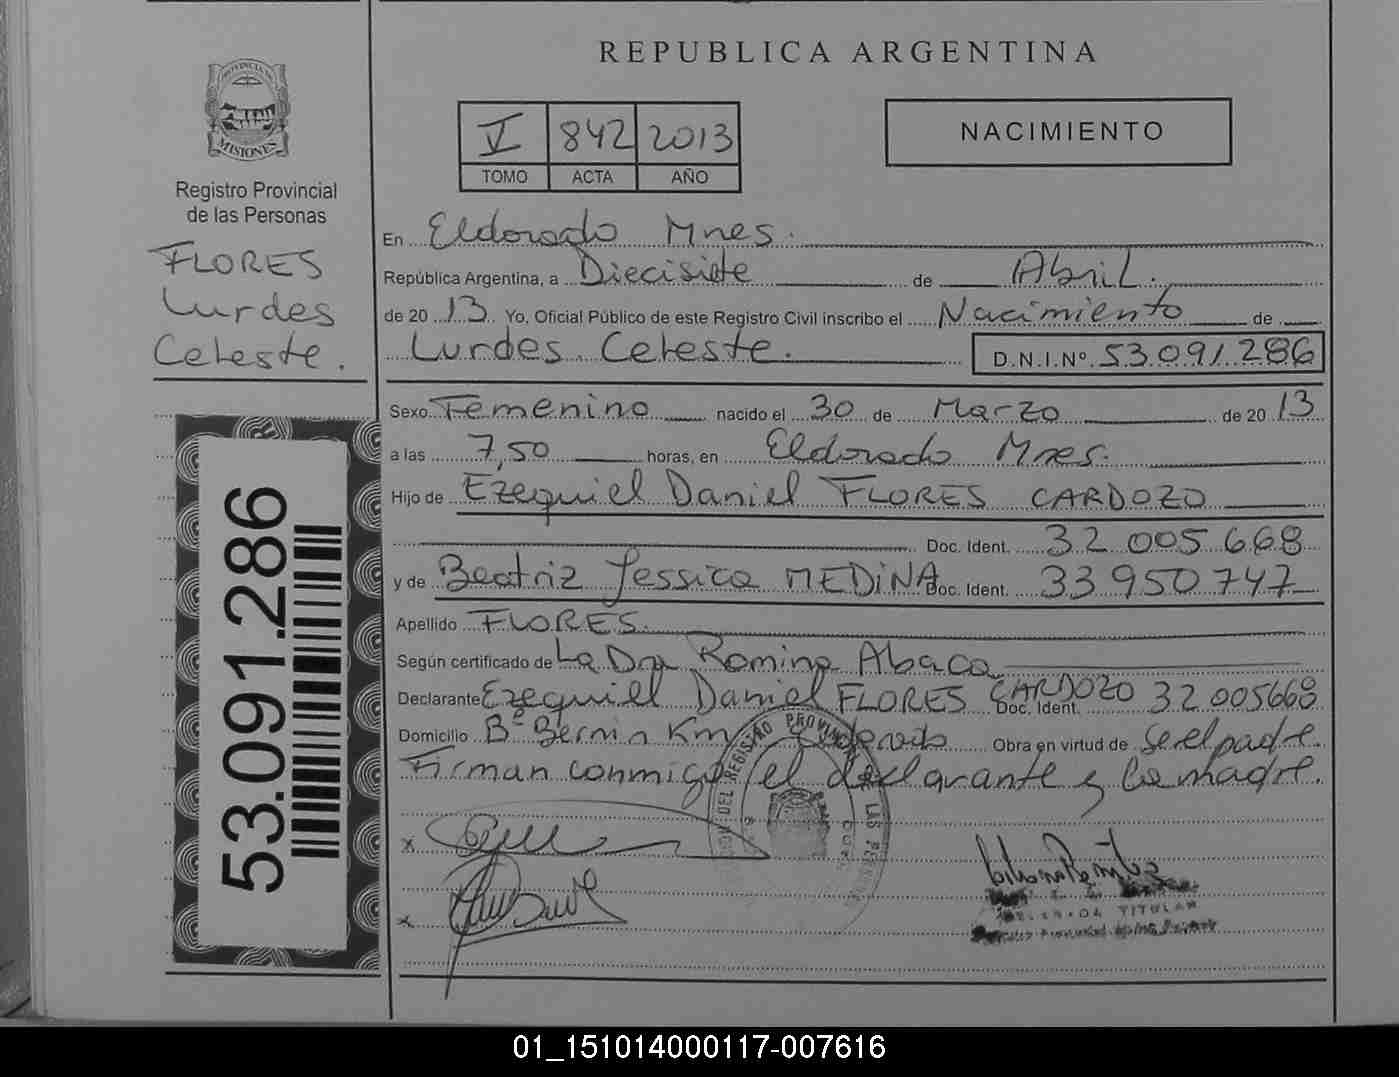 REPUBLICA ARGENTINA
PROVINCIA DE
MISIONES
Registro Provincial
de las Personas
FLORES
Lurdes
Celeste.
53.091.286
V 842 2013
TOMO ACTA AÑO
NACIMIENTO
En Eldorado Mnes.
República Argentina, a Diecisiete de Abril.
de 20 13 Yo, Oficial Público de este Registro Civil inscribo el Nacimiento de
Lurdes Celeste. D.N.I.Nº 53.091.286
Sexo Femenino nacido el 30 de Marzo de 20 13
a las 7,50 horas, en Eldorado Mnes.
Hijo de Ezequiel Daniel FLORES CARDOZO
Doc. Ident. 32.005.668
y de Beatriz Jessica MEDINA Doc. Ident. 33 950 747
Apellido FLORES.
Según certificado de La Dra Romina Abaca
Declarante Ezequiel Daniel FLORES CARDOZO Doc. Ident. 32 005668
Domicilio Bº Bernin Km Eldorado Obra en virtud de Ser el padre.
Firman conmigo el declarante y la madre.
x
x
TITULAR
01_151014000117-007616